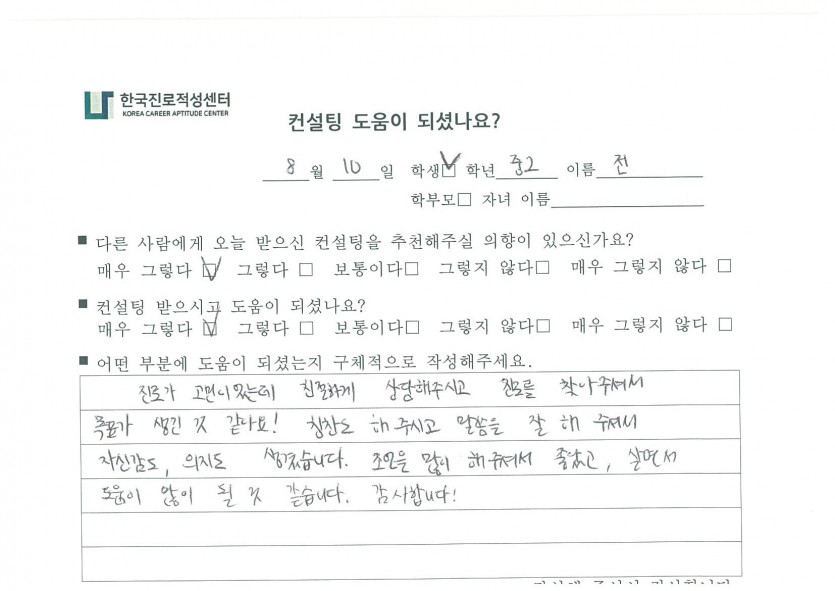 한국진로적성센터
KOREA CAREER APTITUDE CENTER
컨설팅 도움이 되셨나요?
8 월 10 일 학생☑ 학년 중2 이름 전
학부모□ 자녀 이름
■ 다른 사람에게 오늘 받으신 컨설팅을 추천해주실 의향이 있으신가요?
매우 그렇다 ☑ 그렇다 □ 보통이다□ 그렇지 않다□ 매우 그렇지 않다 □
■ 컨설팅 받으시고 도움이 되셨나요?
매우 그렇다 ☑ 그렇다 □ 보통이다□ 그렇지 않다□ 매우 그렇지 않다 □
■ 어떤 부분에 도움이 되셨는지 구체적으로 작성해주세요.
진로가 고민이었는데 친절하게 상담해주시고 진로를 찾아주셔서
목표가 생긴 것 같아요! 칭찬도 해 주시고 말씀을 잘 해 주셔서
자신감도, 의지도 생겼습니다. 조언을 많이 해주셔서 좋았고, 살면서
도움이 많이 될 것 같습니다. 감사합니다!